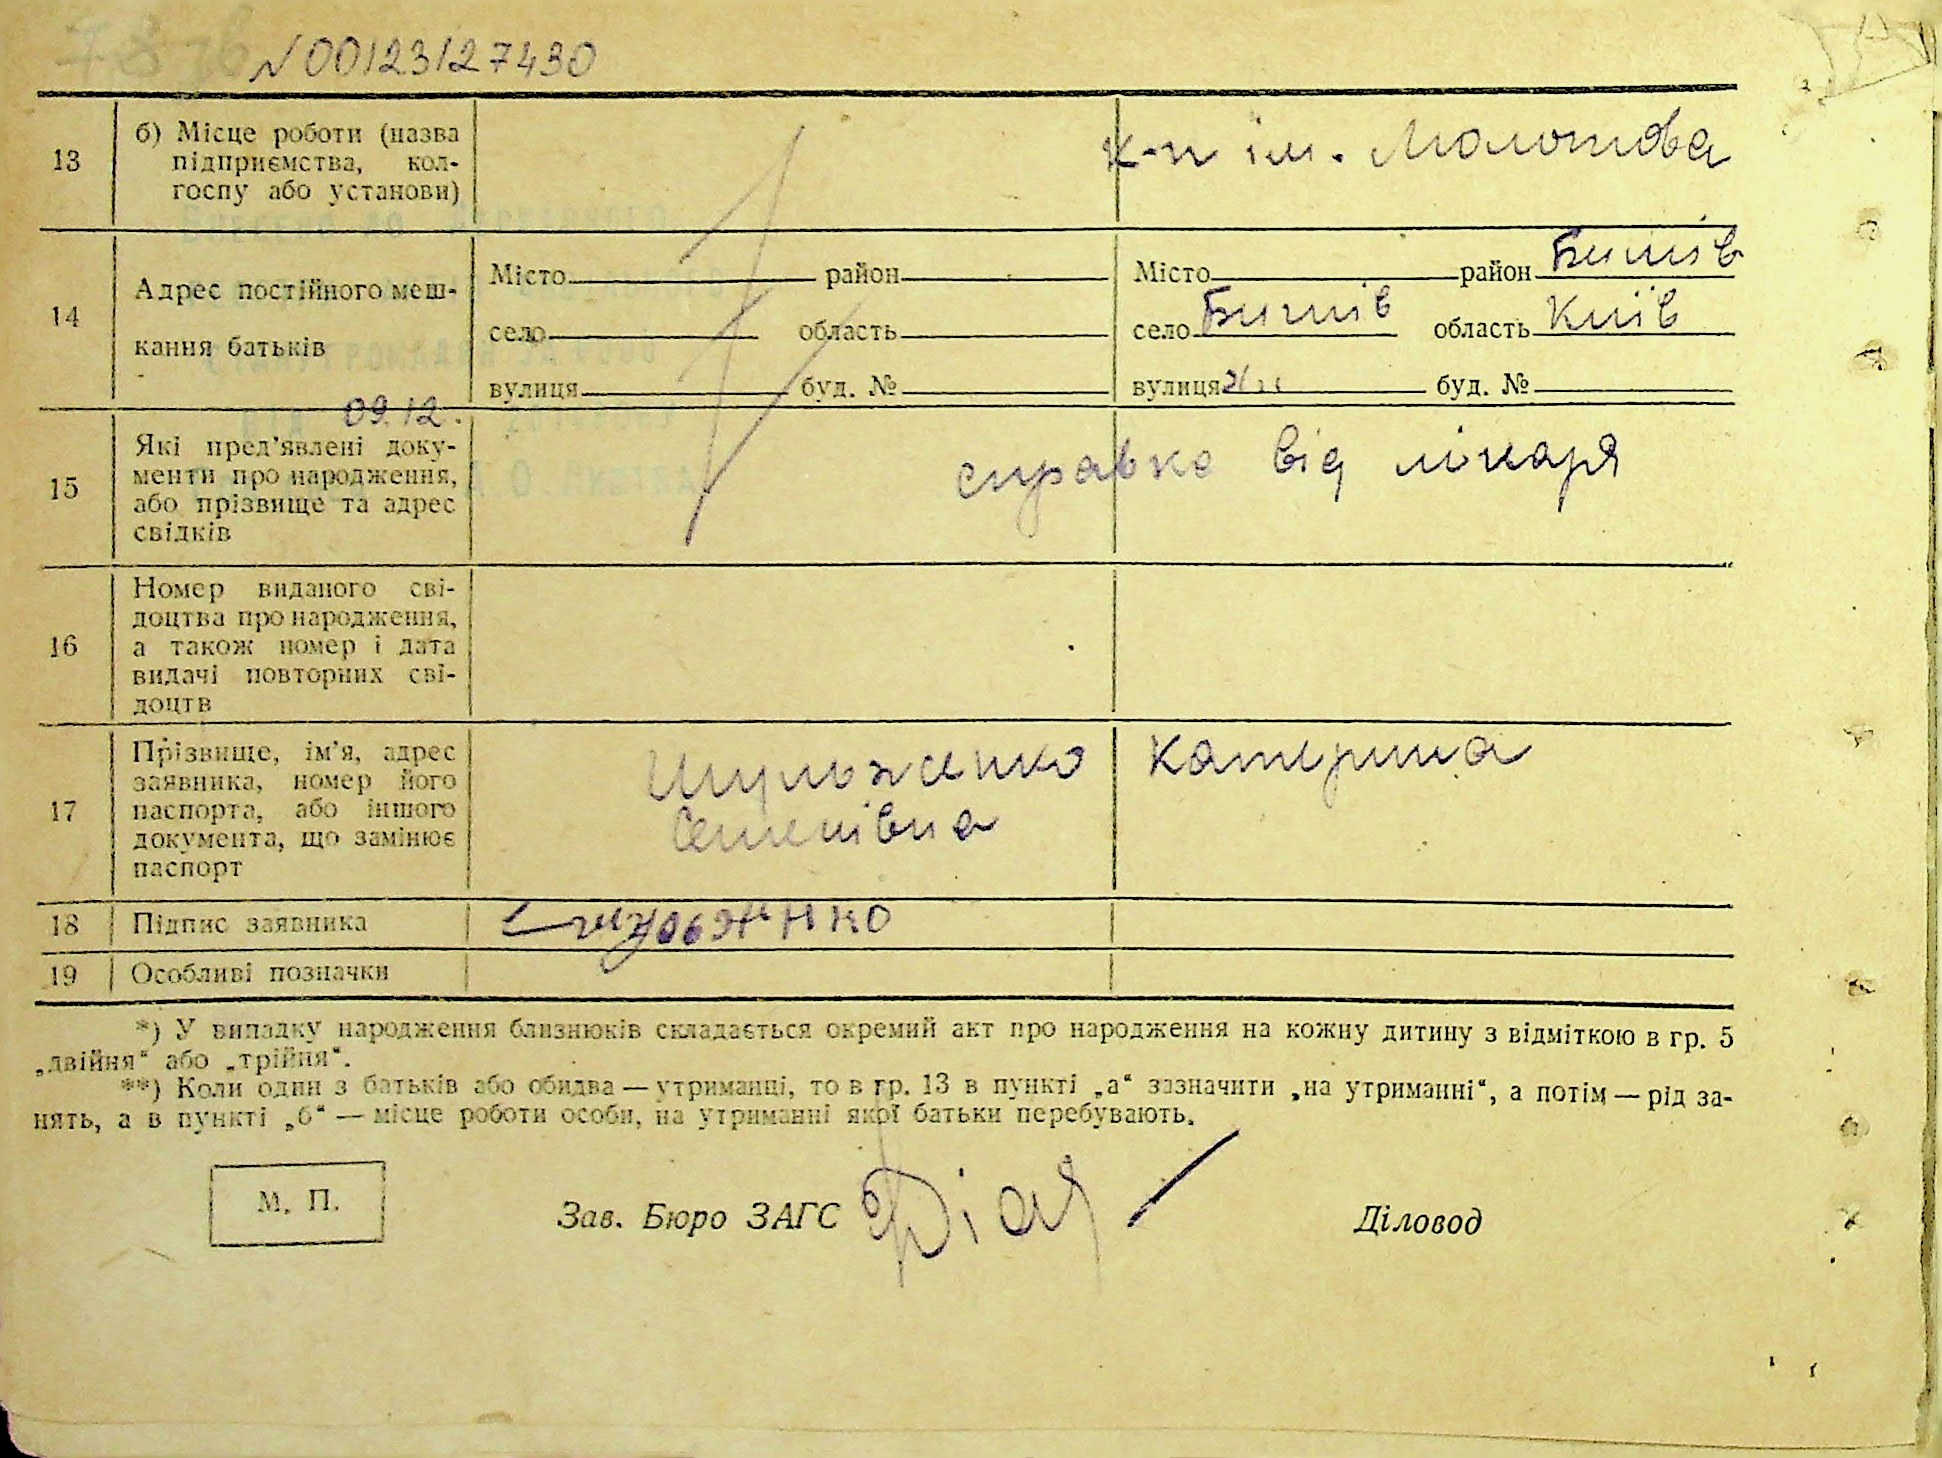 N00123127430
13 б) Місце роботи (назва
підприємства, кол-
госпу або установи)
к-п ім. Молотова
14 Адрес постійного меш-
кання батьків
Місто район Місто район Бишів
село область село Бишів область Київ
вулиця буд. № вулиця буд. №
09.12.
15 Які пред'явлені доку-
менти про народження,
або прізвище та адрес
свідків
справка від лікаря
16 Номер виданого сві-
доцтва про народження,
а також номер і дата
видачі повторних сві-
доцтв
17 Прізвище, ім'я, адрес
заявника, номер його
паспорта, або іншого
документа, що замінює
паспорт
Шульженко Катерина
Семенівна
18 Підпис заявника
19 Особливі позначки
*) У випадку народження близнюків складається окремий акт про народження на кожну дитину з відміткою в гр. 5
„двійня“ або „трійня“.
**) Коли один з батьків або обидва — утриманці, то в гр. 13 в пункті „а“ зазначити „на утриманні“, а потім — рід за-
нять, а в пункті „б“ — місце роботи особи, на утриманні якої батьки перебувають.
М. П. Зав. Бюро ЗАГС Діловод